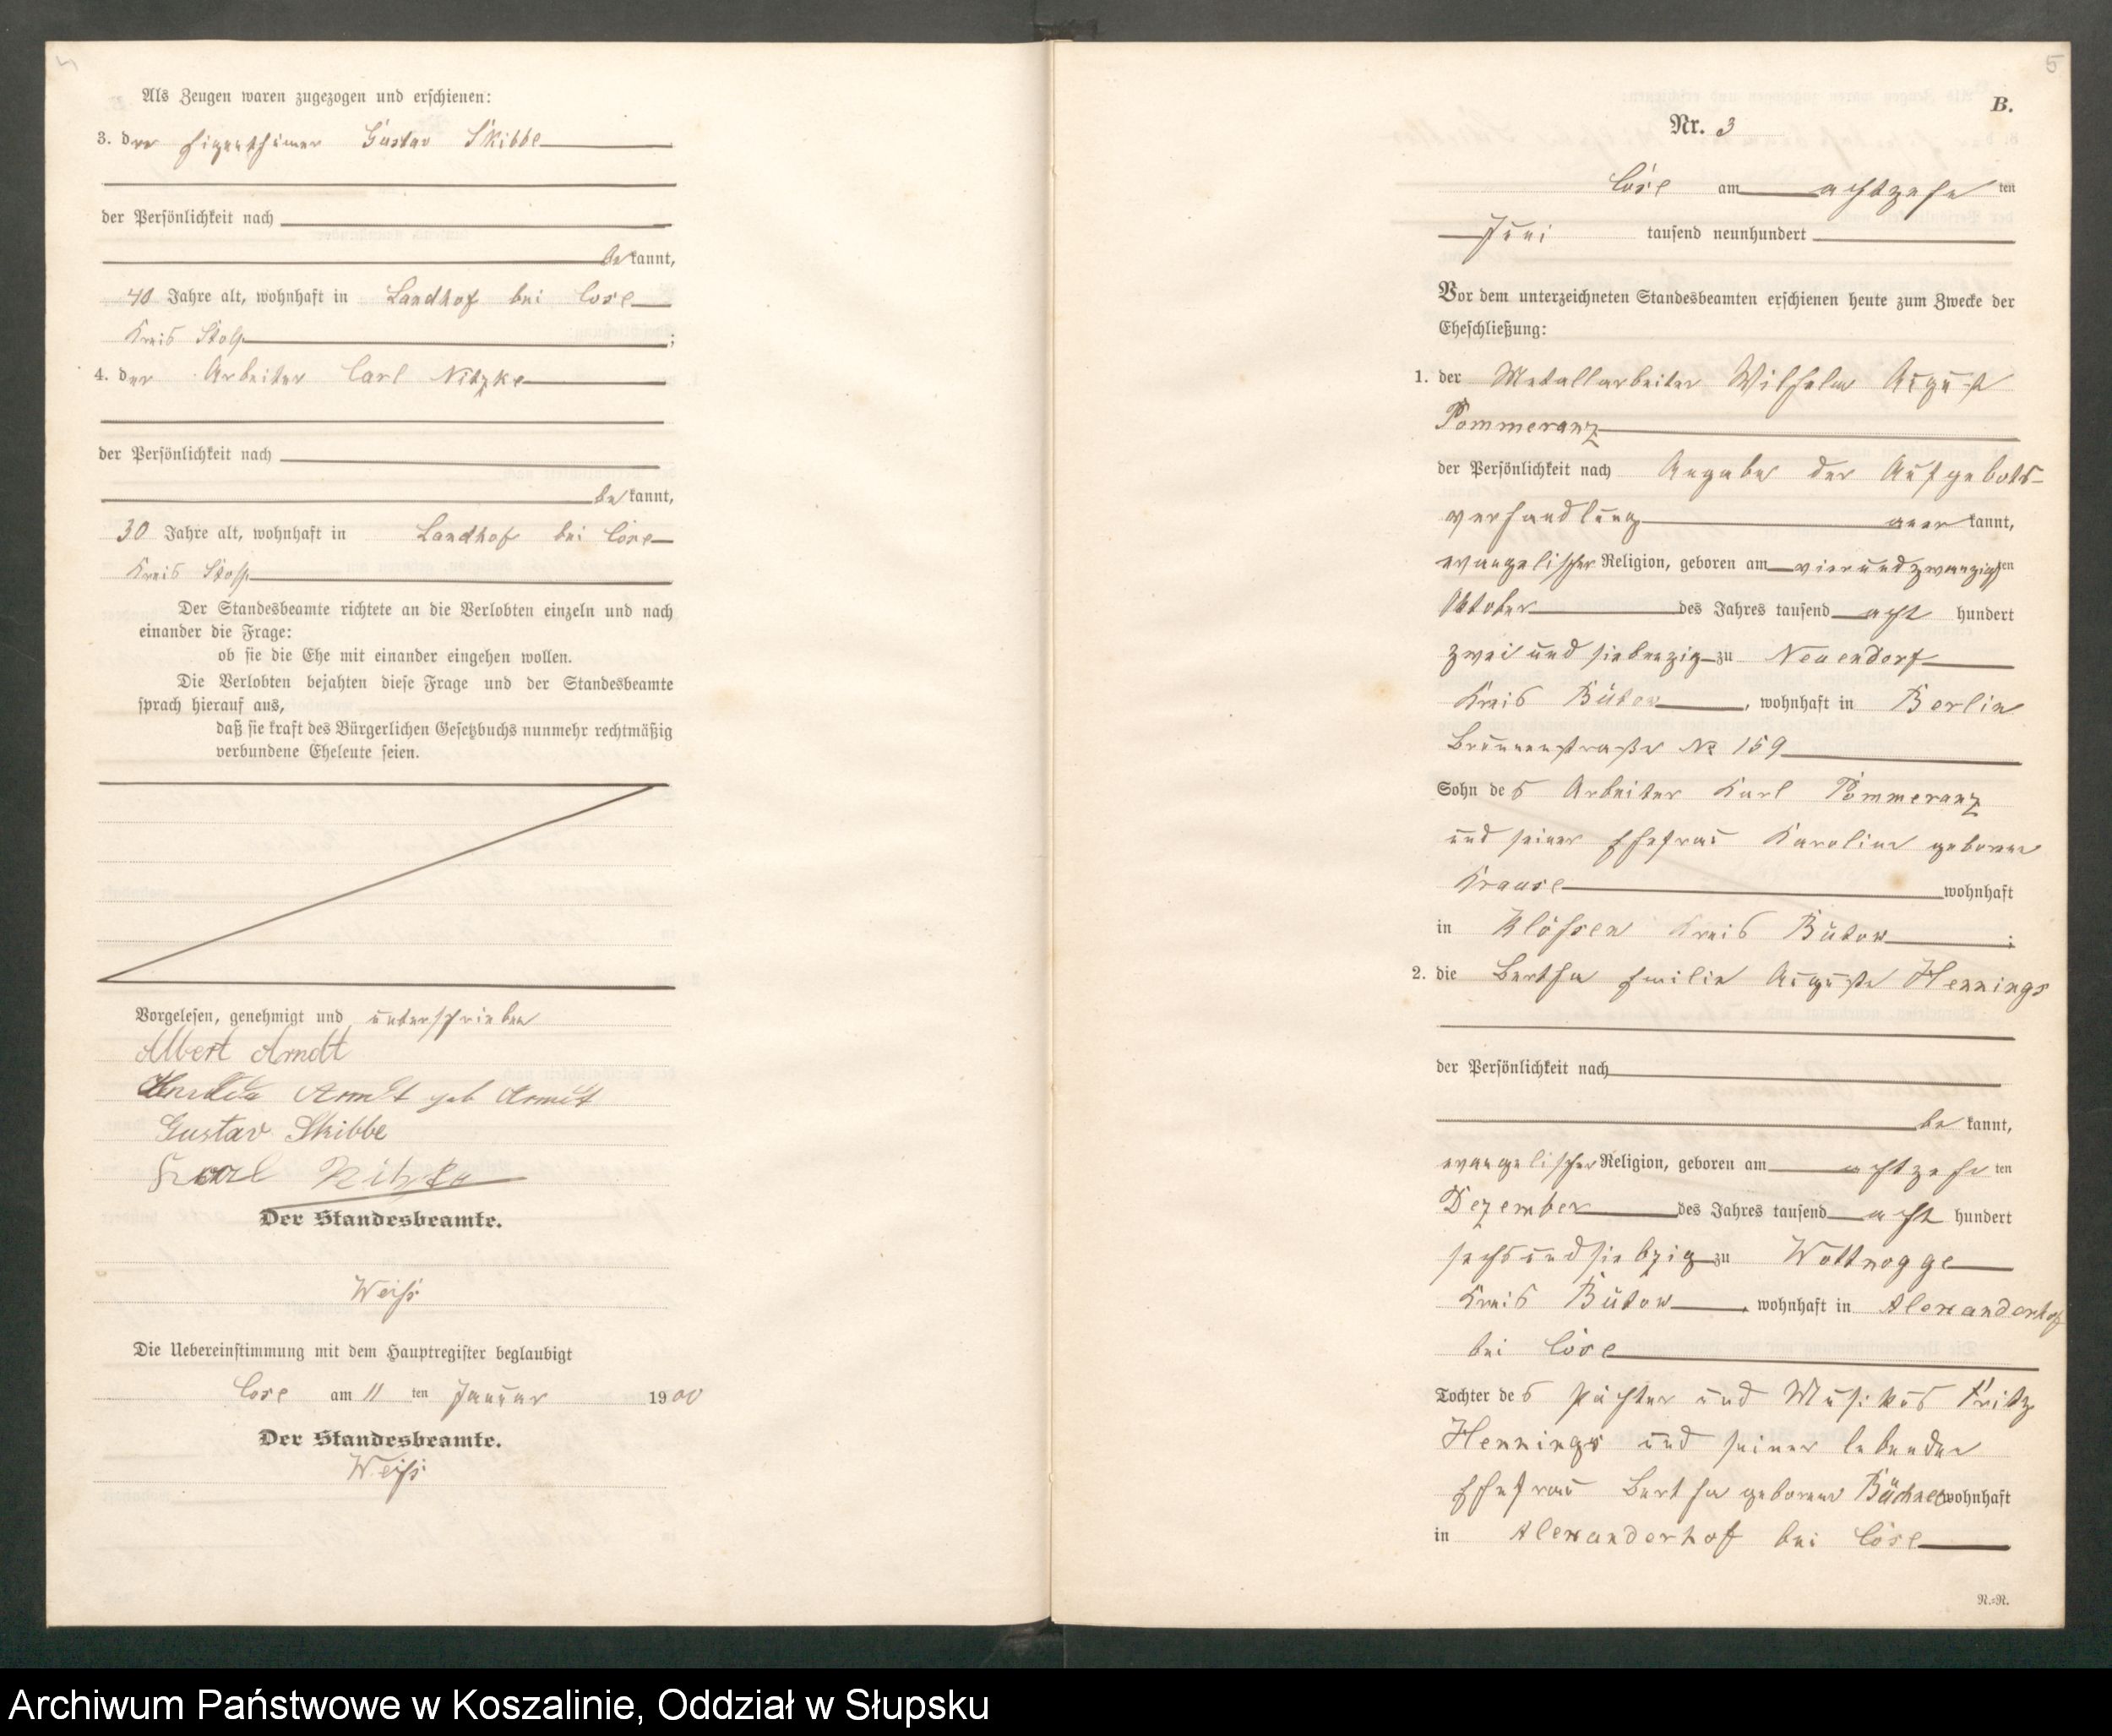 Als Zeugen waren zugezogen und erschienen:
3. der Eigenthümer Gustav Skibbe
der Persönlichkeit nach
bekannt,
40 Jahre alt, wohnhaft in Landhof bei Lose
Kreis Stolp ;
4. der Arbeiter Carl Nitzke
der Persönlichkeit nach
bekannt,
30 Jahre alt, wohnhaft in Landhof bei Lose
Kreis Stolp
Der Standesbeamte richtete an die Verlobten einzeln und nach
einander die Frage:
ob sie die Ehe mit einander eingehen wollen.
Die Verlobten bejahten diese Frage und der Standesbeamte
sprach hierauf aus,
daß sie kraft des Bürgerlichen Gesetzbuchs nunmehr rechtmäßig
verbundene Eheleute seien.
Vorgelesen, genehmigt und unterschrieben
Albert Arndt
Arndt geb Arndt
Gustav Skibbe
Karl Nitzke
Der Standesbeamte.
Weiß
Die Uebereinstimmung mit dem Hauptregister beglaubigt
Lose am 11 ten Januar 1900
Der Standesbeamte.
Weiß
5
B.
Nr. 3
Lose am achtzehn ten
Juni tausend neunhundert
Vor dem unterzeichneten Standesbeamten erschienen heute zum Zwecke der
Eheschließung:
1. der Metallarbeiter Wilhelm August
Pommeranz
der Persönlichkeit nach Angabe der Aufgebots-
verhandlung anerkannt,
evangelischer Religion, geboren am vierundzwanzigsten
Oktober des Jahres tausend acht hundert
zwei und siebenzig zu Neuendorf
Kreis Bütow, wohnhaft in Berlin
Brunnenstraße No 159
Sohn des Arbeiter Karl Pommeranz
und seiner Ehefrau Karoline geborene
Krause wohnhaft
in Klößen Kreis Bütow ;
2. die Bertha Emilie Auguste Hennings
der Persönlichkeit nach
bekannt,
evangelischer Religion, geboren am achtzehn ten
Dezember des Jahres tausend acht hundert
sechsundsiebzig zu Wottnogge
Kreis Bütow, wohnhaft in Alexanderhof
bei Lose
Tochter des Pächter und Musikus Fritz
Hennings und seiner lebenden
Ehefrau Bertha geborene wohnhaft
in Alexanderhof bei Lose
N.=N.
Archiwum Państwowe w Koszalinie, Oddział w Słupsku